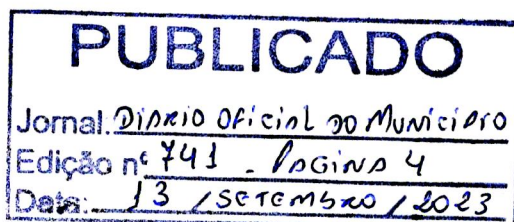 PUBLICADO
Jornal: Diário Oficial do Município
Edição nº 741 - Página 4
Data: 13 / Setembro / 2023